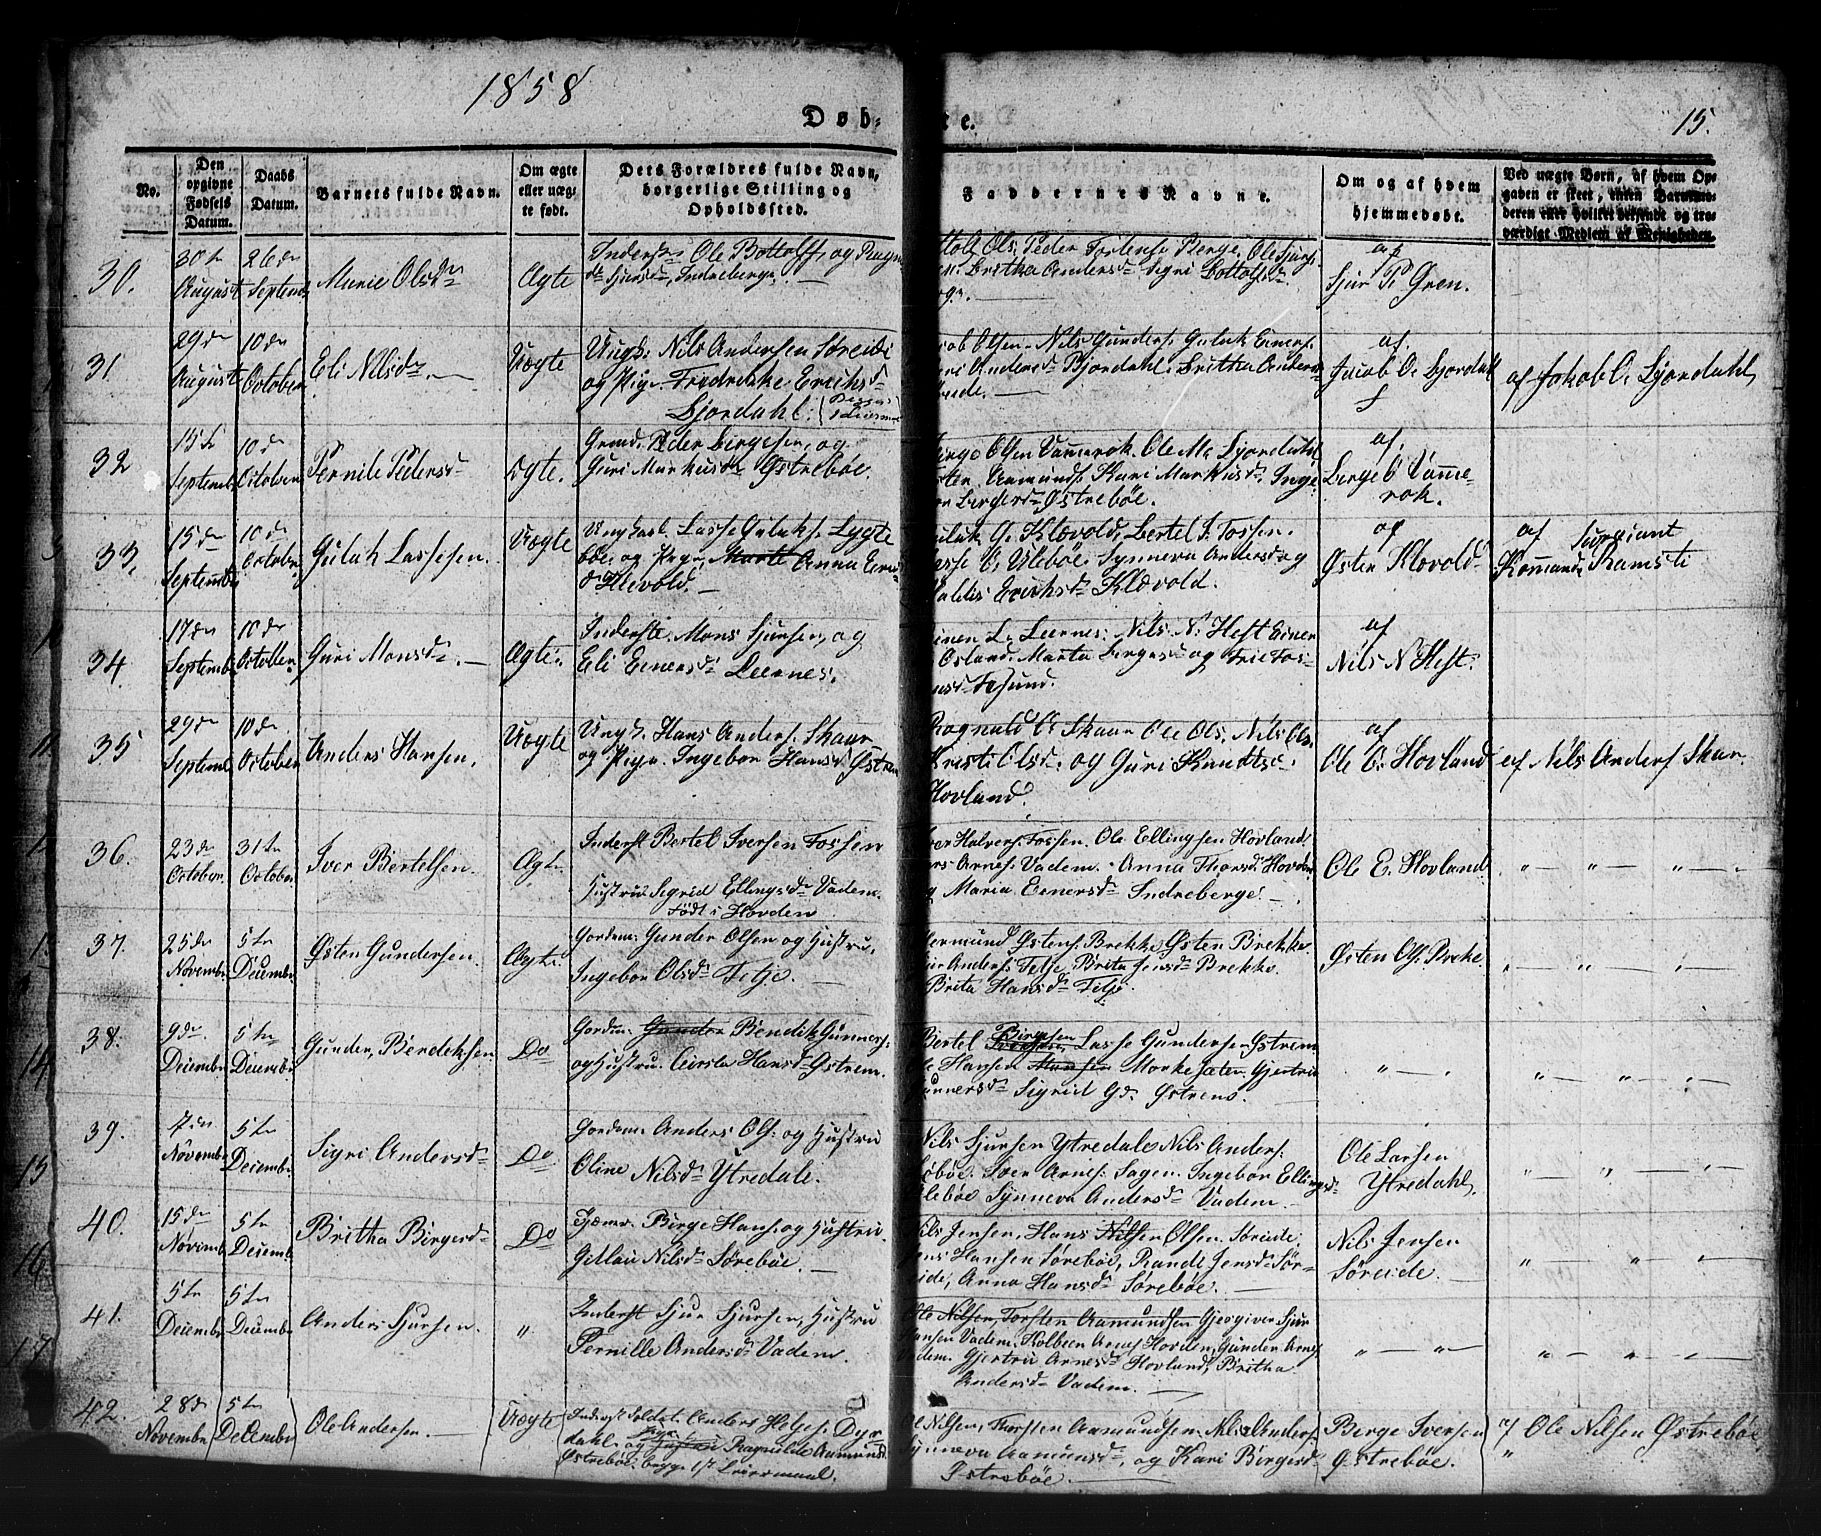 1858
Døb-
te.
15.
No.
Den opgivne Fødsels Datum.
Daabs Datum.
Barnets fulde Navn.
Om ægte eller uægte født.
Dets Forældres fulde Navn, borgerlige Stilling og Opholdssted.
Faddernes Navne.
Om og af hvem hjemmedøbt.
Ved uægte Børn, af hvem Opgaven er skeet, uden Barnemoderen eller hvilket beviisende og troværdigt Medlem af Menigheden.
30.
30te August
26de Septemb
Marie Olsdr
Ægte
Inderst Ole Bottolfs. og Ragn
dr Sjursdr, Indreberge. —
Ols. Peder Torstense Berge. Ole Sjurs.
Britha Andersdr Sigri Bottolfsdr
af
Sjur P Gren.
31.
29de August
10de October
Eli Nilsdr. —
Uægte
Ungk: Nils Andersen Søreide
og Pige Fredrikke Erichsdr
Fjordahl:
Olsen. Nils Gunders. Guluk Einers.
Andersdr Bjordahl. Britha Anders
af
Jacob O. Fjordahl
af Jakob O. Fjordahl
32
15de Septemb
10de October
Pernile Pedersdr
Ægte.
Grmd. Peder Birgesen, og
Guri Markusdr Østrebøe.
Olsen Vamerok. Ole M. Fjordahl
Aamunds. Kari Markusdr. Inge
Bergersdr Østrebøe.
af
Berge O Vamerok.
33.
15de September
10de October
Guluk Lassesen.
Uægte
Ungkarl Lasse Guluks. Lygte
bøe og Pige, Marte Anna Erics
dr Klevold. —
Guluk G. Klævold, Bertel I. Fossen.
Lasse O. Ulebøe. Synneva Andersdr og
Valdis Erichsdr Klævold.
af
Østen Klovold
af Sersjant
Komand Ramsti
34.
17de Septembr
10de October
Guri Monsdr. —
Ægte.
Inderste. Mons Sjursen, og
Eli Einersdr Leernes.
Einen L. Leernes. Nils N. Heft Einer
Osland. Marta Bergesdr og
af
Nils N Heft.
35
29de Septemb
10de October
Anders Hansen,
Uægte
Ungk. Hans Anders. Skaar
og Pige. Ingebor Hansdr Østrem
Ragnald O. Skaar Ole Ols. Nils Ols.
Kristi Olsdr. og Guri Knudtsdr
Hovland.
af
Ole E. Hovland
af Nils Anders. Skar.
36.
23de October
31te October
Iver Bertelsen.
Ægte
Inderst Bertel Iversen Fossen
Hustru Sigrid Ellingsdr Vadem.
født i Hovden
Halvers. Fossen. Ole Ellingsen Hovland
Arnes. Vadem. Anna Thorsdr. Hovden
og Maria Einersdr Indreberge. —
Ole E. Hovland
" — " — " — "
37.
25de Novembr
5te Decembr
Østen Gundersen.
Ægte.
Gordm. Gunder Olsen og Hustru,
Ingebor Olsdr Felje. —
Hermund Østens. Brekke Østen Brekke
Anders. Felje. Brita Jensdr Brekke.
Brita Hansdr Felje.
Østen Ols. Brekke.
" — " — " —
38.
9de Decembr
5te Decembr
Gunder, Bendiksen
Do
Gordm. Gunder Bendik Gunners.
og Hustru. Cirsta Hansdr Østrem.
Bertel Birgesen Lasse Gunderse Østrem
Ole Hansen Hansen Morkesæter. Gjertru
Gunnersdr Sigrid Gdr. Østrem.
" — "
" — " — " —
39.
7de Novembr
5te Decembr
Sigri Andersdr
Do
Gordm. Anders Ols: og Hustru
Oline Nilsdr Ytredale.
Nils Sjursen Ytredale Nils Anders:
Iver Arnes. Sagen. Ingebor Ellingsdr
Synneva Andersdr Vadem. —
Ole Larsen
Ytredahl.
" — " — " —
40.
15de Novemb
5te Decemb
Britha Birgersdr
Do
Berge Hans. og Hustru.
Nilsdr Sørebøe. —
Nils Jensen, Hans Nilsen Olsen. Søreide.
Jens Hansen Sørebøe, Rande Jensdr Sør-
eide, Anna Hansdr Sørebøe. —
Nils Jensen
Søreide. —
" — " — " —
41.
5te Decembr
5te Decembr
Anders Sjursen.
"
Inderst Sjur Sjursen, Hustru
Pernille Andersdr Vadem.
Ole Nilsen, Torsten Aamundsen Gjesgiver Sjur
Hansen Vadem. Kolbeen Arnes. Hovden, Gunder Arnes
Vadem. Gjertru Arnesdr Hovland, Britha
Andersdr Vadem. —
" — " —
" — " — " —
42.
28de Novembr
5te Decembr
Ole Andersen. —
Uægte
Inderst Soldat Anders Helges. Dyr
dahl. og Pige Hustru Ragnilde Aamundsd
Østrebøe. begge 1st Leiermaal.
Ole Nilsen, Torsten Aamundsen Nils Anders.
Synneva Aamundsdr, og Kari Birgesdr
Østrebøe. —
Berge Iversen
Østrebøe.
af Ole Nilsen Østrebøe
14
15
16
17